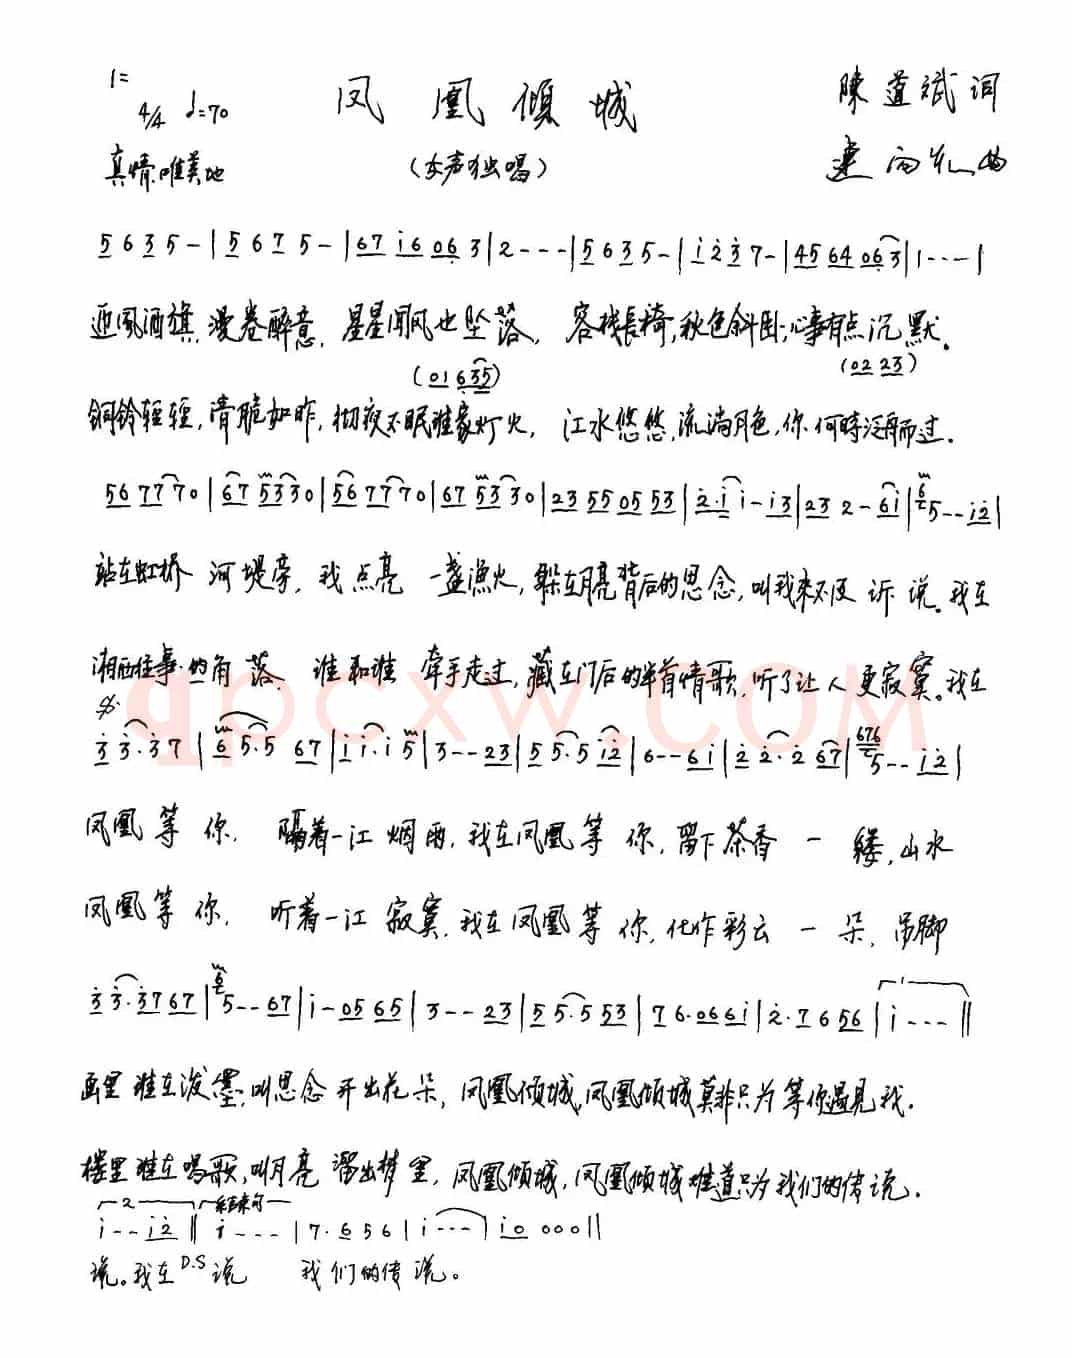 1=
4/4 ♩=70
凤凰倾城
陳道斌 词
真情.唯美地
(女声独唱)
建 曲
5 6 3 5 - | 5 6 7 5 - | 67 i6 06 3 | 2 - - - | 5 6 3 5 - | i 2 3 7 - | 45 64 06 3 | 1 - - - |
迎风酒旗,漫卷醉意,星星闻风也坠落,客栈長椅,秋色斜阳,心事有点沉默。
(01 635) (02 23)
铜铃轻轻,清脆如昨,彻夜不眠谁家灯火,江水悠悠,流淌月色,你何時泛舟而过.
56 77 70 | 67 53 30 | 56 77 70 | 67 53 30 | 23 55 05 53 | 2·i i - i3 | 23 2 - 6i | 6 5 - - i2 |
站在虹桥河堤旁,我点亮一盏漁火,躲在月亮背后的思念,叫我来不及诉说。我在
湘西往事的角落,谁和谁牵手走过,藏在门后的半首情歌,听了让人更寂寞。我在
qpcxw.COM
3 3·3 7 | 6 5·5 67 | i i·i 5 | 3 - - 23 | 5 5·5 i2 | 6 - - 6i | 2 2·2 67 | 676 5 - - i2 |
凤凰等你,隔着一江烟雨,我在凤凰等你,留下茶香一缕,山水
凤凰等你,听着一江寂寞,我在凤凰等你,化作彩云一朵,吊脚
3 3·37 67 | 6 5 - - 67 | i - 05 65 | 3 - - 23 | 5 5·5 53 | 7 6·06 6i | 2·7 6 56 | 1 i - - - ‖
画里谁在泼墨,叫思念开出花朵,凤凰倾城,凤凰倾城莫非只为等你遇見我.
楼里谁在唱歌,叫月亮溜出梦里,凤凰倾城,凤凰倾城难道只为我们的传说.
2 结束句
i - - i2 ‖ i - - - | 7·6 5 6 | i - - - | i0 0 0 0 ‖
说。我在 D.S 说 我们的传说。